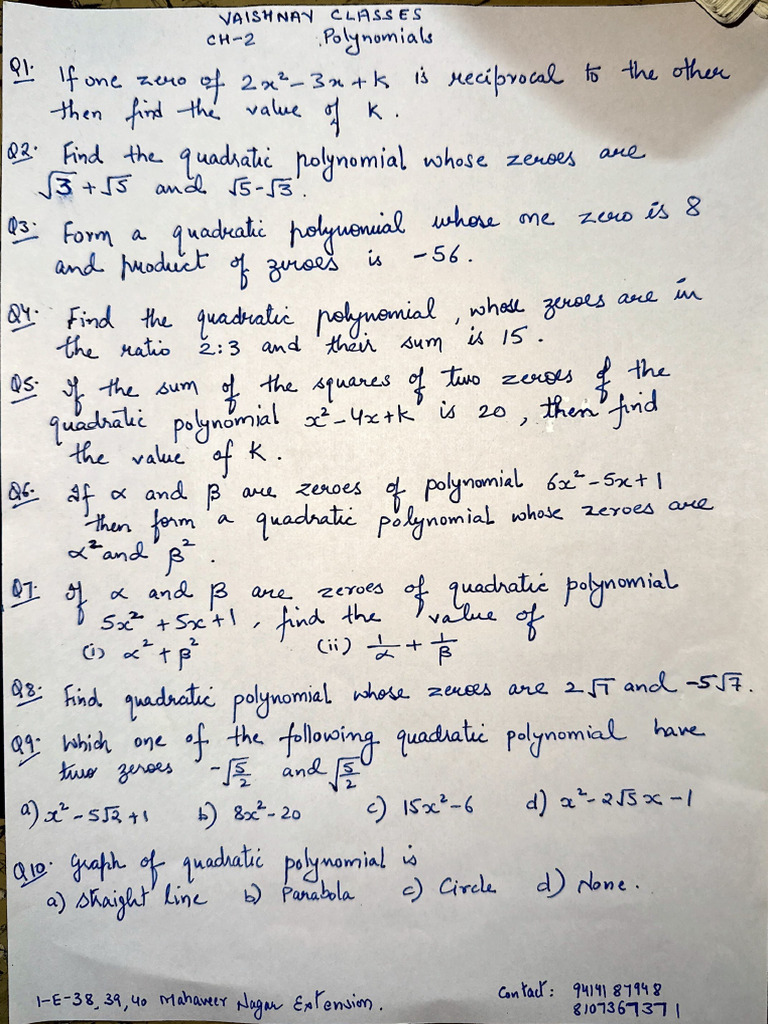 VAISHNAV CLASSES
CH-2 Polynomials
Q1. If one zero of 2x² - 3x + k is reciprocal to the other
then find the value of K.
Q2. Find the quadratic polynomial whose zeroes are
√3 + √5 and √5 - √3.
Q3. Form a quadratic polynomial whose one zero is 8
and product of zeroes is -56.
Q4. Find the quadratic polynomial, whose zeroes are in
the ratio 2:3 and their sum is 15.
Q5. If the sum of the squares of two zeroes of the
quadratic polynomial x² - 4x + k is 20, then find
the value of K.
Q6. If α and β are zeroes of polynomial 6x² - 5x + 1
then form a quadratic polynomial whose zeroes are
α² and β².
Q7. If α and β are zeroes of quadratic polynomial
5x² + 5x + 1, find the value of
(i) α² + β² (ii) 1/α + 1/β
Q8. Find quadratic polynomial whose zeroes are 2√7 and -5√7.
Q9. Which one of the following quadratic polynomial have
two zeroes -√5/2 and √5/2
a) x² - 5√2 + 1 b) 8x² - 20 c) 15x² - 6 d) x² - 2√5x - 1
Q10. Graph of quadratic polynomial is
a) straight line b) Parabola c) Circle d) None.
1-E-38, 39, 40 Mahaveer Nagar Extension. Contact: 9414187948
8107367371